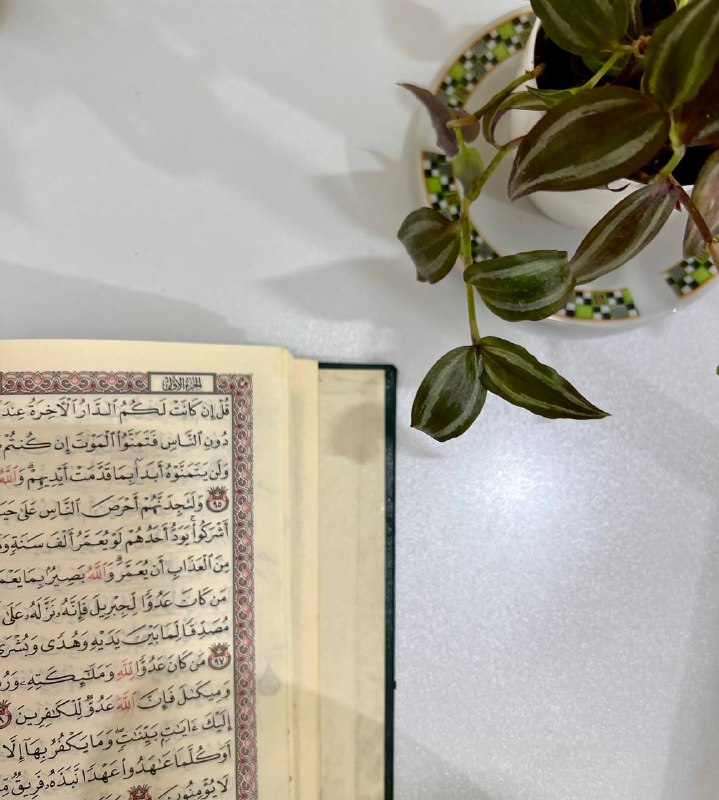 الجزء الأول
قُلْ إِن كَانَتْ لَكُمُ ٱلدَّارُ ٱلْأٓخِرَةُ عِندَ
دُونِ ٱلنَّاسِ فَتَمَنَّوُا۟ ٱلْمَوْتَ إِن كُنتُمْ
وَلَن يَتَمَنَّوْهُ أَبَدًۢا بِمَا قَدَّمَتْ أَيْدِيهِمْ ۗ وَٱللَّهُ
٩٥ وَلَتَجِدَنَّهُمْ أَحْرَصَ ٱلنَّاسِ عَلَىٰ
أَشْرَكُوا۟ ۚ يَوَدُّ أَحَدُهُمْ لَوْ يُعَمَّرُ أَلْفَ سَنَةٍ
مِنَ ٱلْعَذَابِ أَن يُعَمَّرَ ۗ وَٱللَّهُ بَصِيرٌۢ بِمَا
مَن كَانَ عَدُوًّا لِّجِبْرِيلَ فَإِنَّهُۥ نَزَّلَهُۥ عَلَىٰ
مُصَدِّقًا لِّمَا بَيْنَ يَدَيْهِ وَهُدًى وَبُشْرَىٰ
٩٧ مَن كَانَ عَدُوًّا لِّلَّهِ وَمَلَـٰٓئِكَتِهِۦ
وَمِيكَىٰلَ فَإِنَّ ٱللَّهَ عَدُوٌّ لِّلْكَـٰفِرِينَ
إِلَيْكَ ءَايَـٰتٍۭ بَيِّنَـٰتٍ ۖ وَمَا يَكْفُرُ بِهَآ إِلَّا
أَوَكُلَّمَا عَـٰهَدُوا۟ عَهْدًا نَّبَذَهُۥ فَرِيقٌ
لَا يُؤْمِنُونَ